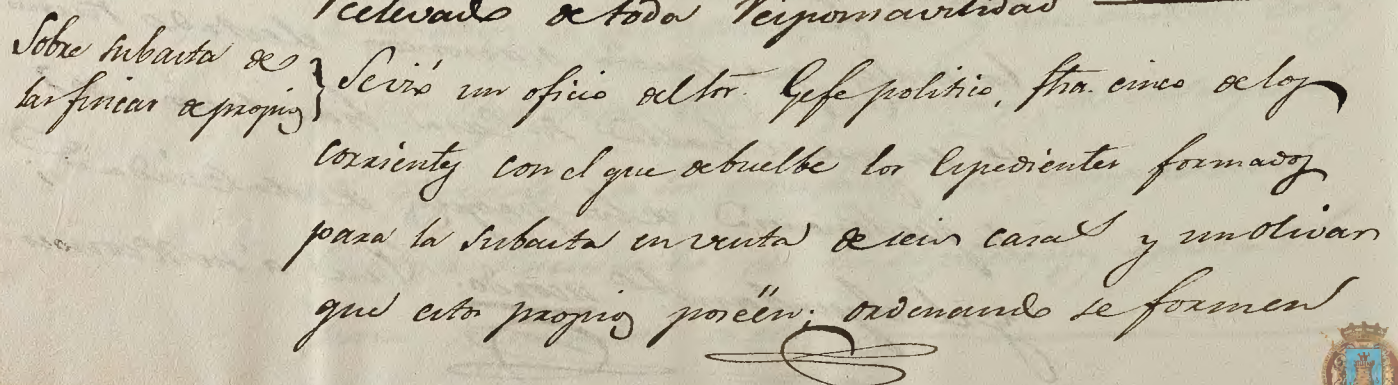 relevado de toda responsavilidad
Sobre subasta de
las fincas de propios
Se vió un oficio del Sor. Gefe politico, fha. cinco de los
corrientes con el que debuelbe los Espedientes formados
para la subasta en venta de seis casas y un olivar
que estos propios poséen; ordenando se formen